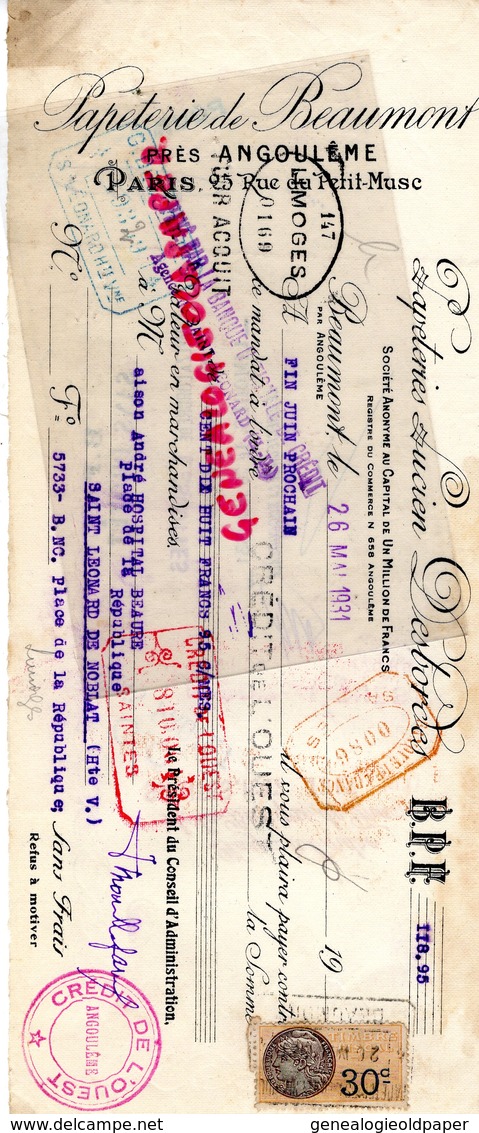 Papeterie de Beaumont
PRÈS ANGOULÊME
PARIS, 25 Rue du Petit-Musc
Papeteries Lucien Desbordes
SOCIÉTÉ ANONYME AU CAPITAL DE UN MILLION DE FRANCS
REGISTRE DU COMMERCE N 658 ANGOULÊME
B.P.F.
118.95
Beaumont, le 26 MAI 1931 19
PAR ANGOULÊME
A FIN JUIN PROCHAIN il vous plaira payer contre
ce mandat à l'ordre CRÉDIT DE L'OUEST la Somme
CENT DIX HUIT FRANCS 95 c/mes,
valeur en marchandises.
Le Président du Conseil d'Administration,
à M aison André HOSPITAL BEAURE
Place de la République
SAINT LEONARD DE NOBLAT (Hte V.)
No Fo 5733- B.NC. Place de la République; Sans Frais
Refus à motiver
LIMOGES
147
0169
POUR ACQUIT
CRÉDIT DE L'OUEST
SAINTES
CRÉDIT DE L'OUEST
ANGOULÊME
30c
genealogieoldpaper
genealogieoldpaper